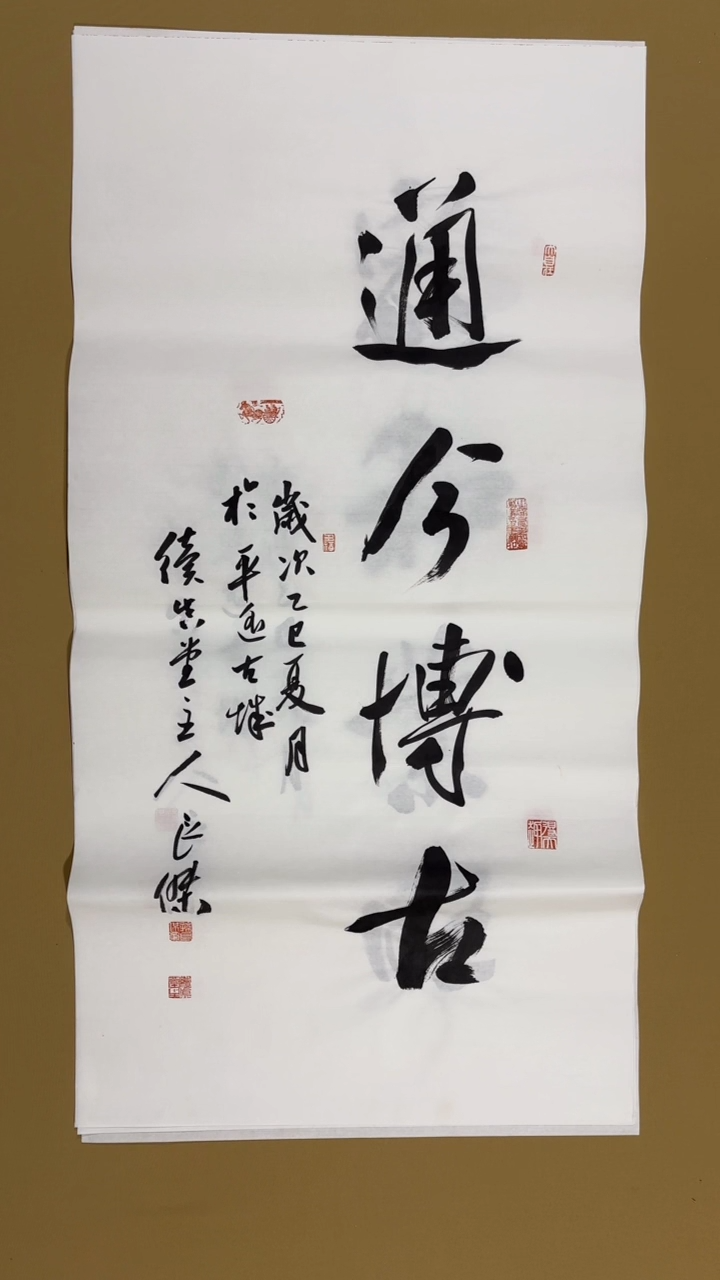 通今博古
歲次乙巳夏月
於平遙古城
續堂主人良傑